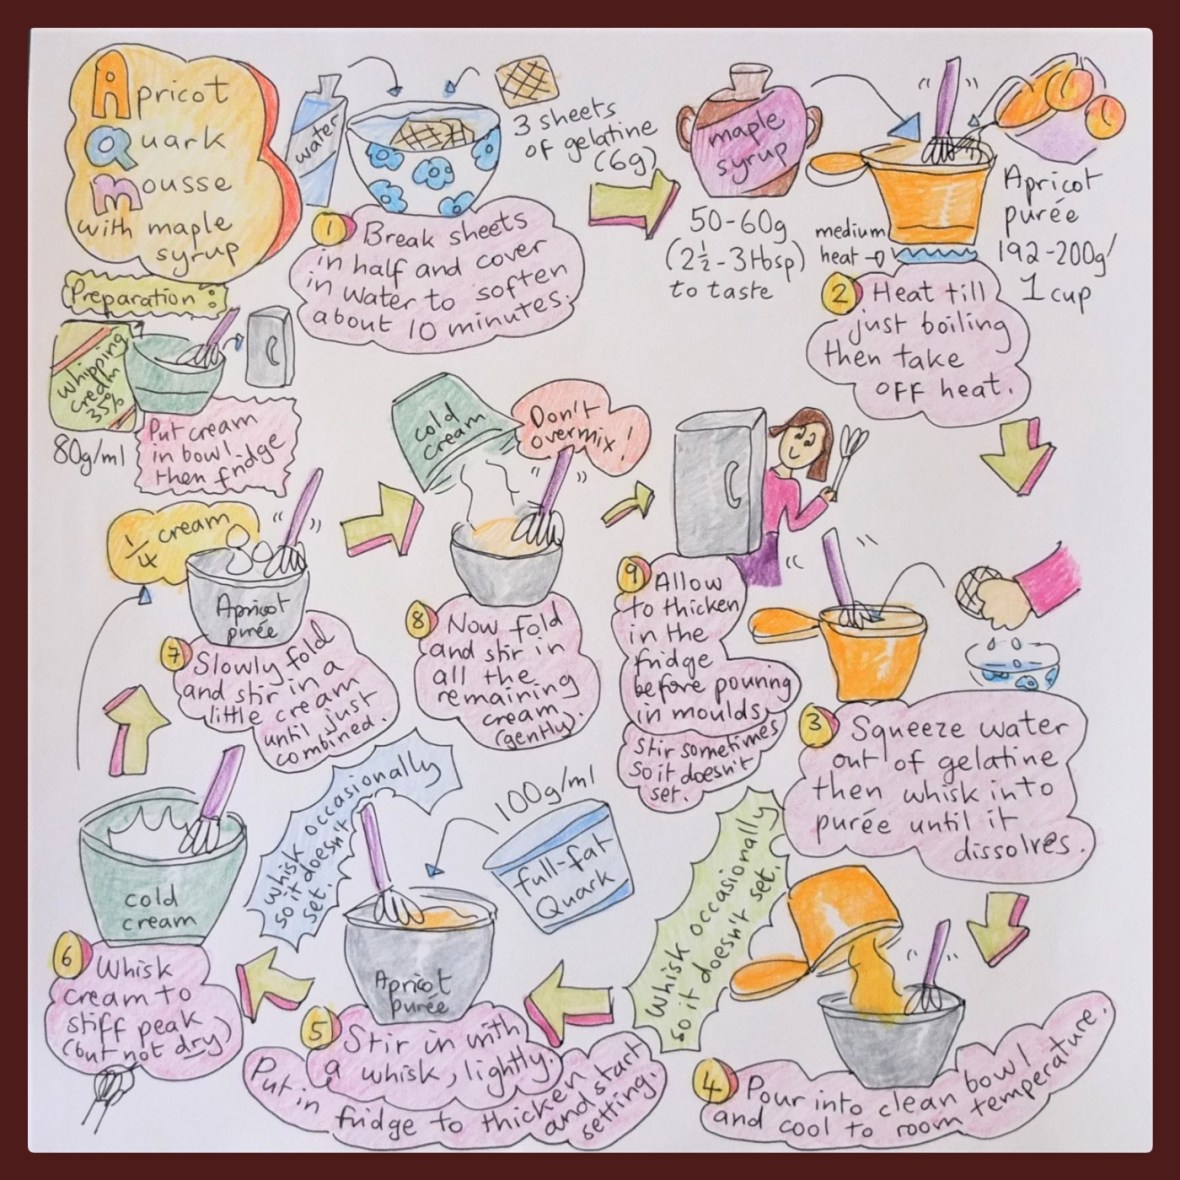 Apricot
Quark
Mousse
with maple
syrup
Preparation:
whipping
cream
35%
80g/ml
Put cream
in bowl
then fridge
water
3 sheets
of gelatine
(6g)
1 Break sheets
in half and cover
in water to soften
about 10 minutes.
maple
syrup
50-60g
(2½-3tbsp)
to taste
medium
heat
Apricot
purée
192-200g/
1 cup
2 Heat till
just boiling
then take
OFF heat.
3 Squeeze water
out of gelatine
then whisk into
purée until it
dissolves.
whisk occasionally
so it doesn't set.
4 Pour into clean bowl
and cool to room temperature.
100g/ml
full-fat
Quark
Apricot
purée
5 Stir in with
a whisk, lightly.
Put in fridge to thicken and start
setting.
whisk occasionally
so it doesn't
set.
cold
cream
6 Whisk
cream to
stiff peak
(but not dry)
¼ cream
Apricot
purée
7 Slowly fold
and stir in a
little cream
until just
combined.
cold
cream
Don't
overmix!
8 Now fold
and stir in
all the
remaining
cream
(gently).
9 Allow
to thicken
in the
fridge
before pouring
in moulds
Stir sometimes
so it doesn't
set.